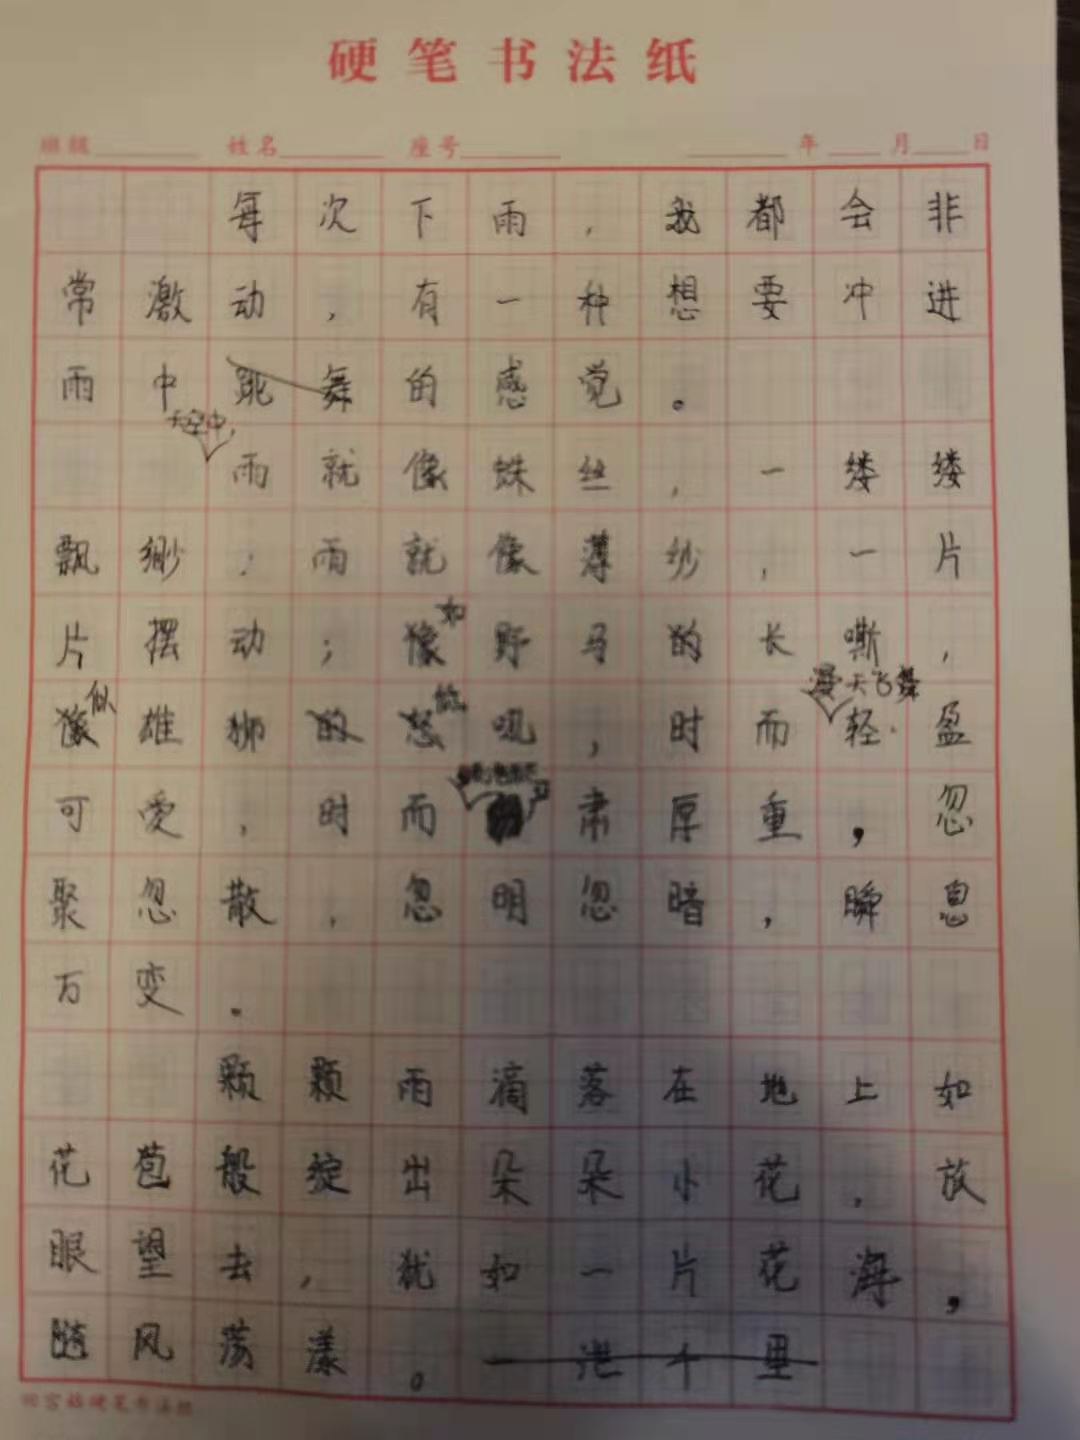 硬笔书法纸
班级 姓名 座号 年 月 日
每次下雨，我都会非
常激动，有一种想要冲进
雨中跳舞的感觉。
天空中，
雨就像蛛丝，一缕缕
飘缈；雨就像薄纱，一片
如
片摆动；像野马的长嘶，
似 漫天飞舞
像雄狮的怒吼，时而轻盈
可爱，时而肃厚重，忽
聚忽散，忽明忽暗，瞬息
万变。
颗颗雨滴落在地上如
花苞般绽出朵朵小花，放
眼望去，犹如一片花海，
随风荡漾。一泄千里
田字格硬笔书法纸